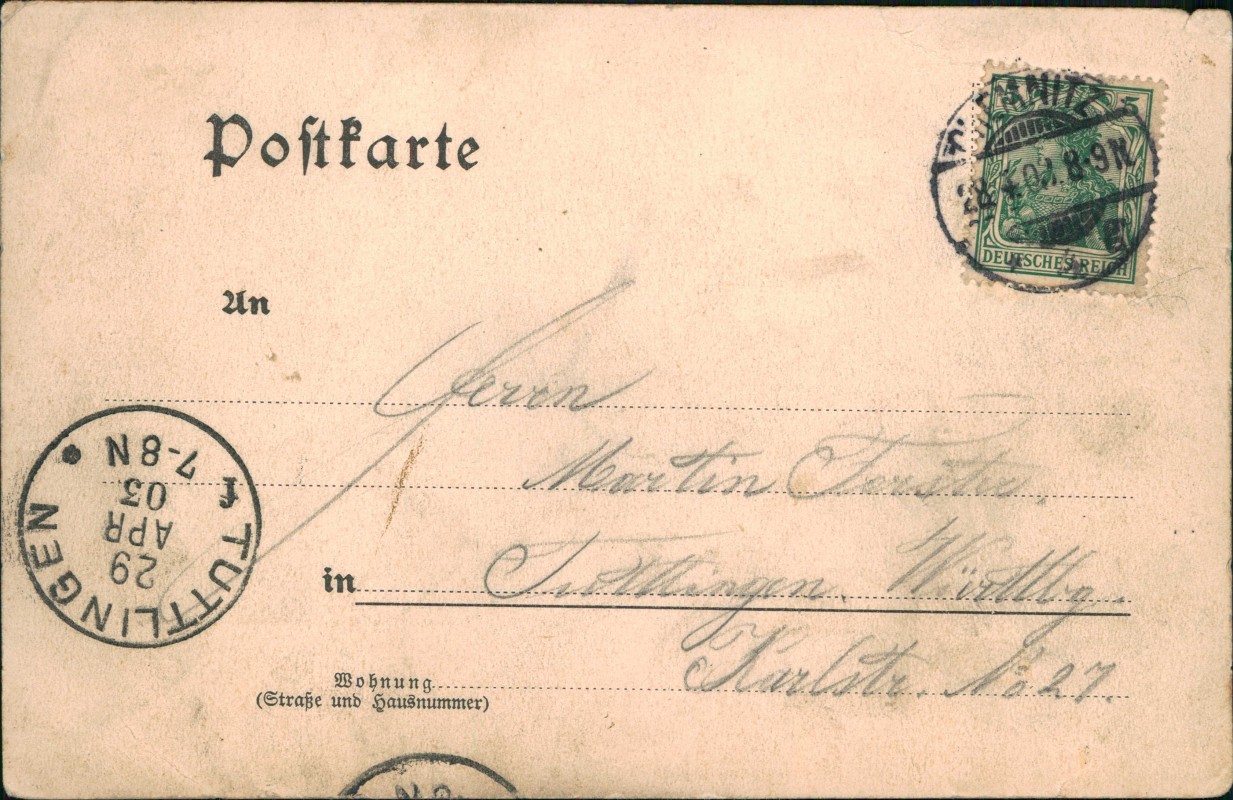 Postkarte
5
CHEMNITZ
28.4.03. 8-9N
DEUTSCHES REICH
An
Herrn
Martin
in Tuttlingen. Württbg.
Karlstr. No 27.
Wohnung
(Straße und Hausnummer)
1 TUTTLINGEN
29
APR
03
7-8N